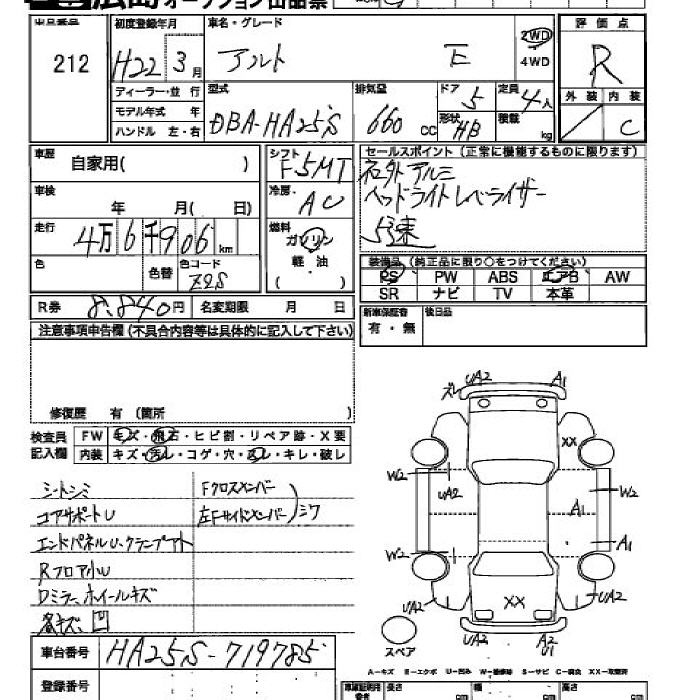 広島 オークション出品票
出品番号 初度登録年月 車名・グレード 評価点
212 H22 3月 アルト E 2WD 4WD R
ディーラー・並行 型式 排気量 ドア 定員 外装 内装
モデル年式 年 DBA-HA25S 660 CC 5 4人 C
ハンドル 左・右 形状 HB 積載 kg
車歴 自家用( ) シフト F5MT
セールスポイント(正常に機能するものに限ります)
社外アルミ
ヘッドライトレベライザー
5速
車検 年 月( 日) 冷房 AC
走行 4万6千906km 燃料 ガソリン 軽・油 ( )
色 色替 色コード Z2S
装備品(純正品に限り○をつけてください)
PS PW ABS エアB AW
SR ナビ TV 本革
R券 8,840円 名変期限 月 日
新車保証書 有・無 後日品
注意事項申告欄(不具合内容等は具体的に記入して下さい)
修復歴 有(箇所 )
検査員記入欄 FW キズ・飛石・ヒビ割・リペア跡・X要
内装 キズ・汚レ・コゲ・穴・スレ・キレ・破レ
シートシミ Fクロスメンバー
コアサポートU 左Fサイドメンバー シワ
エンドパネルU・クランプアト
RフロアU
Dミラー、ホイールキズ
各キズ、凹
車台番号 HA25S-719785
登録番号
ズレ UA2 A1
XX
W2 UA2 W2
A1
A1
W2
UA2 XX UA2
UA2 A2 U1
スペア
A-キズ E-エクボ U-凹み W-補修跡 S-サビ C-腐食 XX-交換済
長さ cm 幅 cm 高さ cm